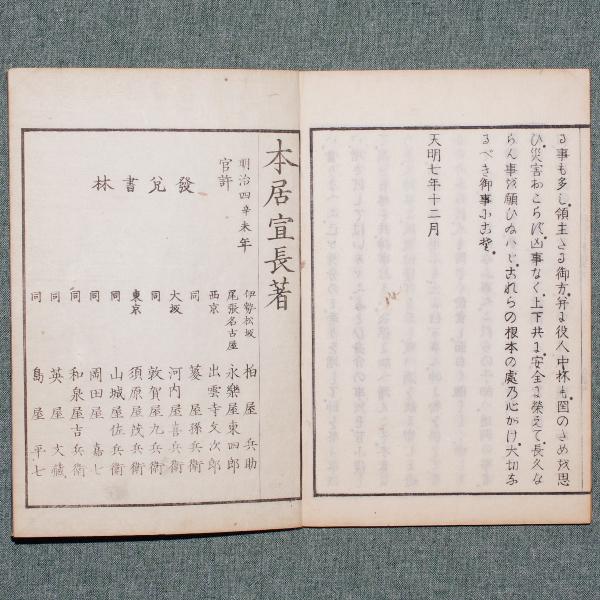 る事も多し、領主さる御方、弁に役人中抔も、国のため越思
ひ、災害おこら須、凶事なく、上下共に安全に榮えて、長久な
らん事を願ひぬべし、これらの根本の處乃心がけ、大切な
るべき御事にこそ、
天明七年十二月
本居宣長著
明治四辛未年
官許
發兌書林
伊勢松坂 柏屋兵助
尾張名古屋 永樂屋東四郎
西京 出雲寺文次郎
同 菱屋孫兵衛
大坂 河内屋喜兵衛
同 敦賀屋九兵衛
東京 須原屋茂兵衛
同 山城屋佐兵衛
同 岡田屋嘉七
同 和泉屋吉兵衛
同 英屋文藏
同 島屋平七